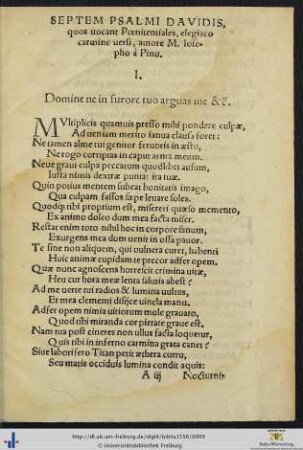 SEPTEM PSALMI DAVIDIS,
quos uocant Pœnitentiales, elegiaco
carmine uersi, autore M. Iose-
pho à Pinu.
I.
Domine ne in furore tuo arguas me &c.
MVltiplicis quamuis presso mihi pondere culpæ,
Ad ueniam merito ianua clausa foret:
Ne tamen alme tui genitor feruoris in æstu,
Ne rogo corripias in caput arma meum.
Neue graui culpa peccatum quodlibet ausum,
Iusta nimis dextræ puniat ira tuæ.
Quin potius mentem subeat bonitatis imago,
Qua culpam fassos sæpe leuare soles.
Quodque tibi proprium est, misereri quæso memento,
Ex animo doleo dum mea facta miser.
Restat enim toto nihil hoc in corpore sanum,
Exurgens mea dum uenit in ossa pauor.
Te sine non aliquem, qui uulnera curet, habenti
Huic animæ cupidam te precor adfer opem.
Quæ nunc agnoscens horrescit crimina uitæ,
Heu cur hora meæ lenta salutis abest?
Ad me uerte tui radios & lumina uultus,
Et mea clementi disijce uincla manu.
Adfer opem nimis uitiorum mole grauato,
Quod tibi miranda cor pietate graue est,
Nam tua post cineres non ullus facta loquetur,
Quis tibi in inferno carmina grata canet?
Siue laborifero Titan petit æthera curru,
Seu matis occiduis lumina condit aquis:
A iij Nocturnis
http://dl.ub.uni-freiburg.de/diglit/biblia1556/0009
© Universitätsbibliothek Freiburg
Baden-Württemberg